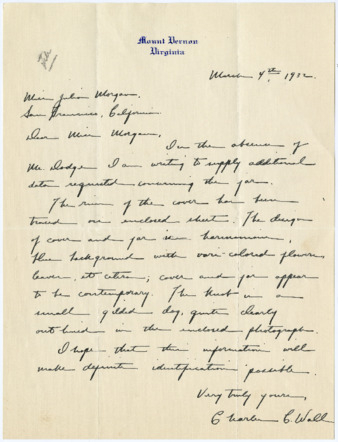 Mount Vernon
Virginia
March 4th, 1932.
Miss Julia Morgan,
San Francisco, California.
Dear Miss Morgan,
In the absence of
Mr. Dodge I am writing to supply additional
data requested concerning the jar.
The rim of the cover has been
traced on enclosed sheet. The design
of cover and jar is in harmony,
blue background with vari-colored flowers
leaves, et cetera; cover and jar appear
to be contemporary. The knob is a
small gilded dog, quite clearly
outlined in the enclosed photograph.
I hope that this information will
make definite identification possible.
Very truly yours,
Charles C. Wall